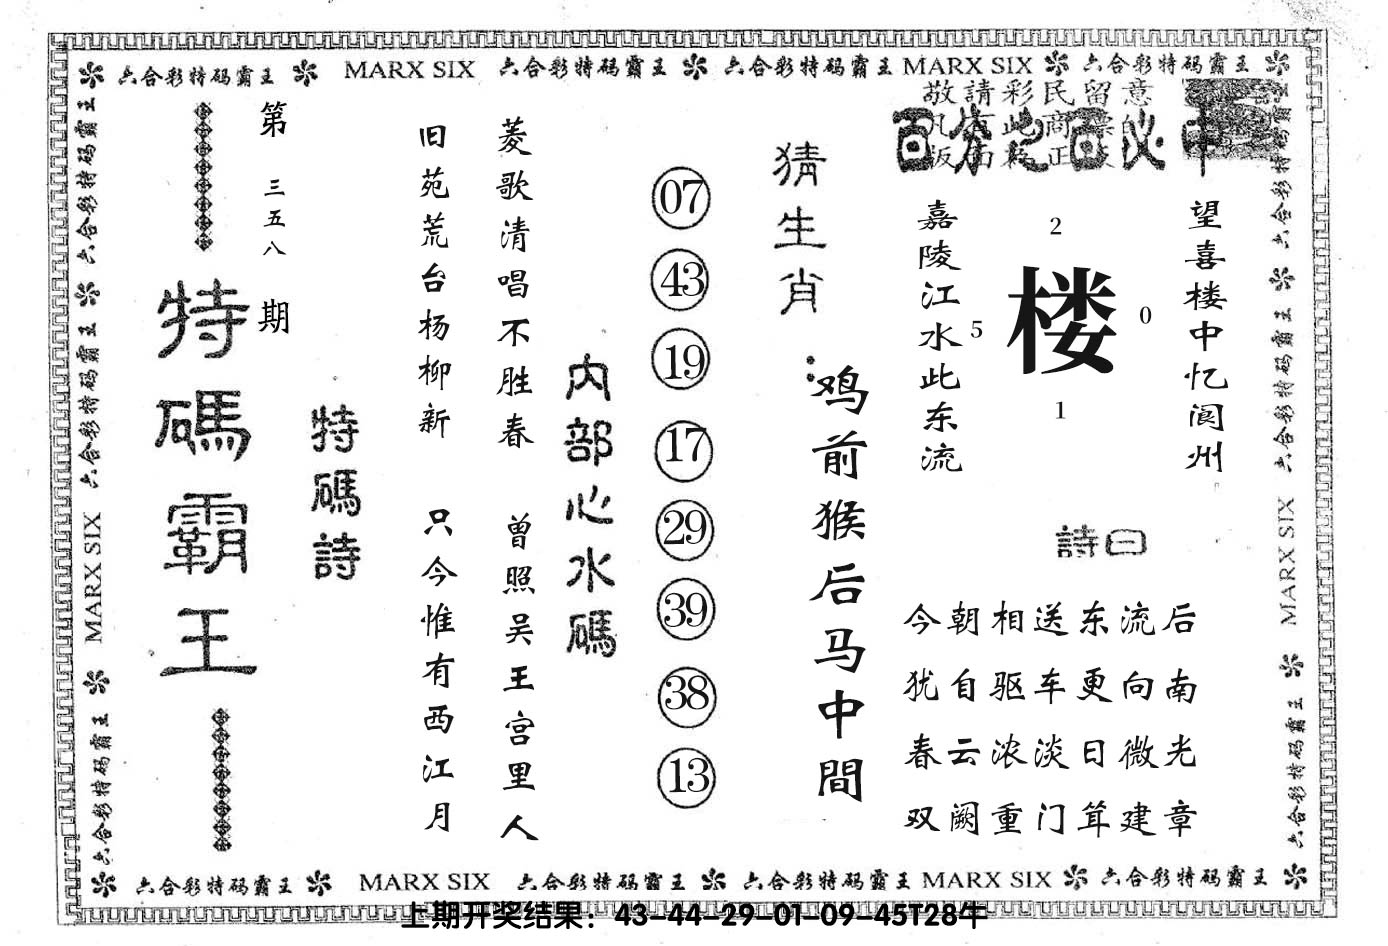 六合彩特码霸王 MARX SIX 六合彩特码霸王 六合彩特码霸王 MARX SIX 六合彩特码霸王
敬請彩民留意
百分之百必中
望喜楼中忆阆州
嘉陵江水此东流
2
5
楼
0
1
詩曰
今朝相送东流后
犹自驱车更向南
春云浓淡日微光
双阙重门耸建章
猜生肖:
鸡前猴后马中間
07
43
19
17
29
39
38
13
内部心水碼
菱歌清唱不胜春
曾照吴王宫里人
旧苑荒台杨柳新
只今惟有西江月
特碼詩
第三五八期
特碼霸王
六合彩特码霸王 六合彩特码霸王 MARX SIX 六合彩特码霸王
六合彩特码霸王 六合彩特码霸王 MARX SIX 六合彩特码霸王
六合彩特码霸王 MARX SIX 六合彩特码霸王 六合彩特码霸王 MARX SIX 六合彩特码霸王
上期开奖结果：43-44-29-01-09-45T28牛